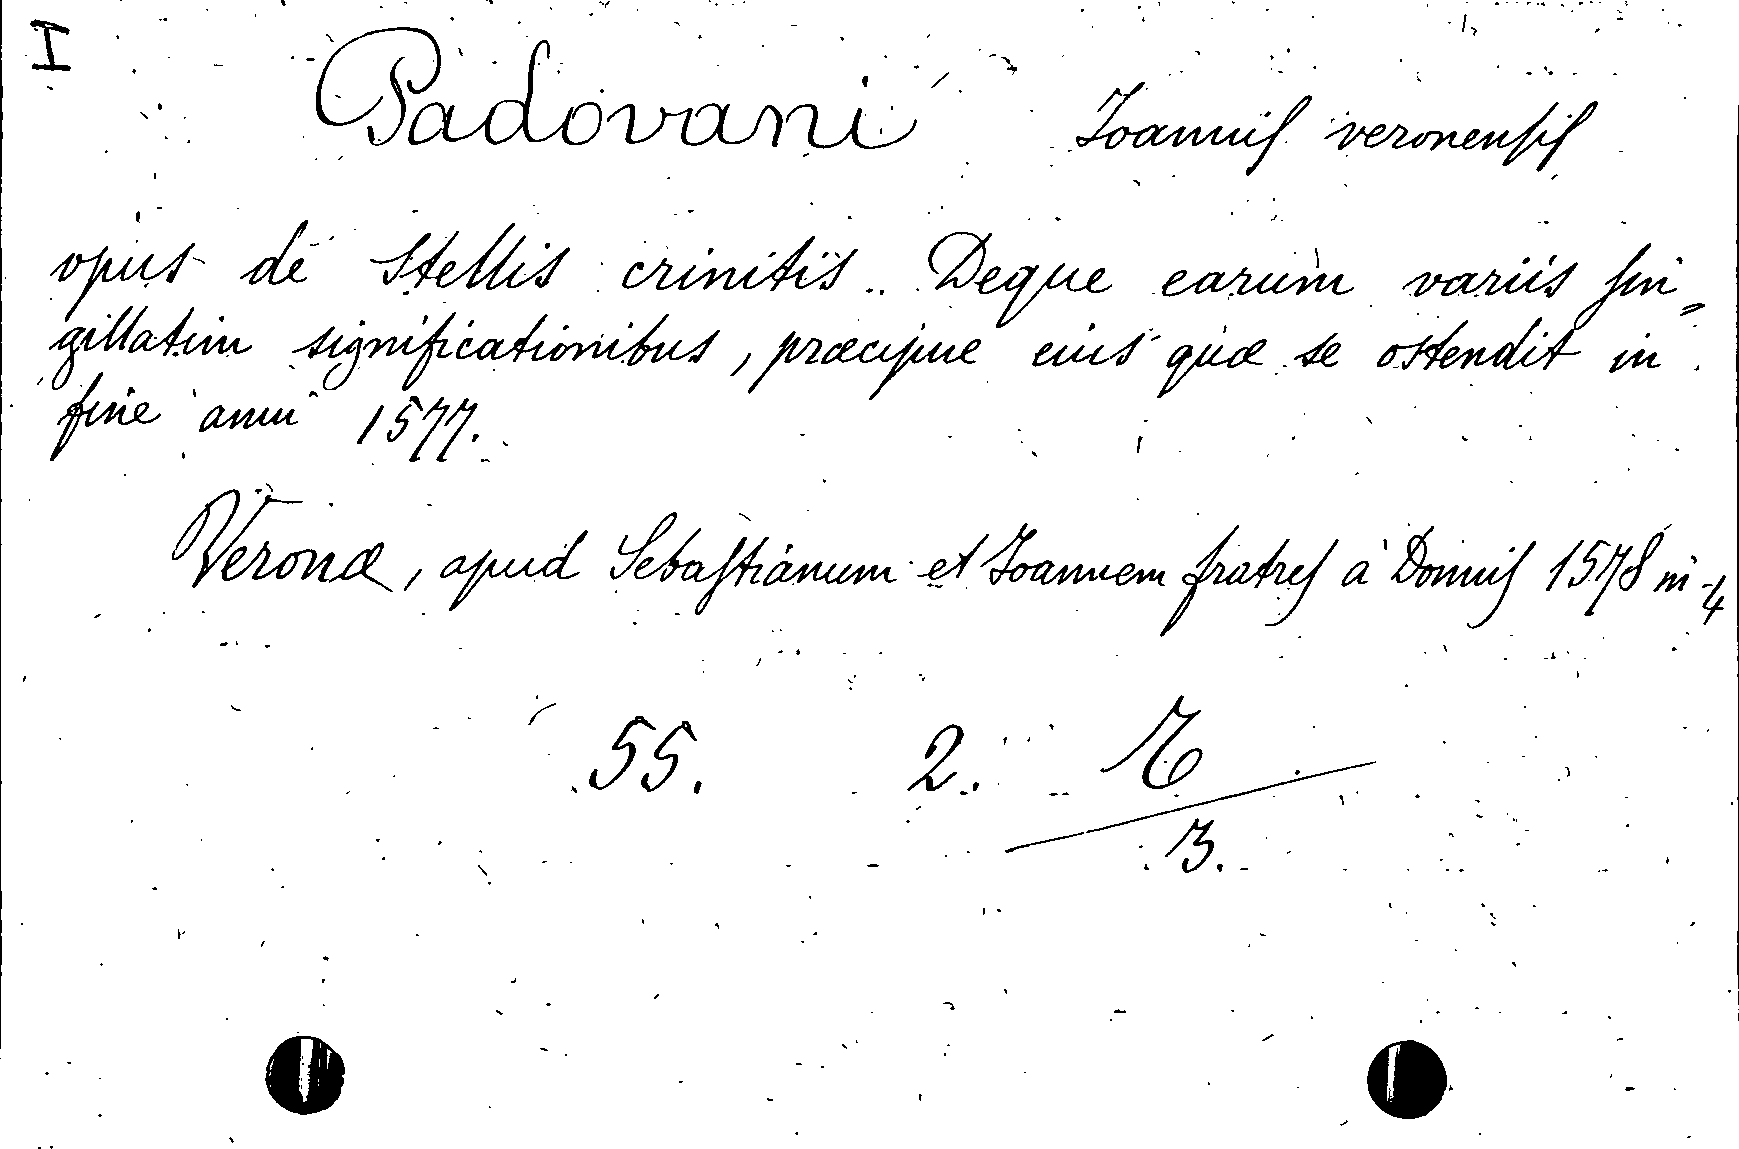 I
Padovani Ioannis veronensis
opus de Stellis crinitis. Deque earum variis sin=
gillatim significationibus, præcipue eius quæ se ostendit in
fine anni 1577.
Veronæ, apud Sebastianum et Ioannem fratres à Donnis 1578 in-4
55. 2. 
3.